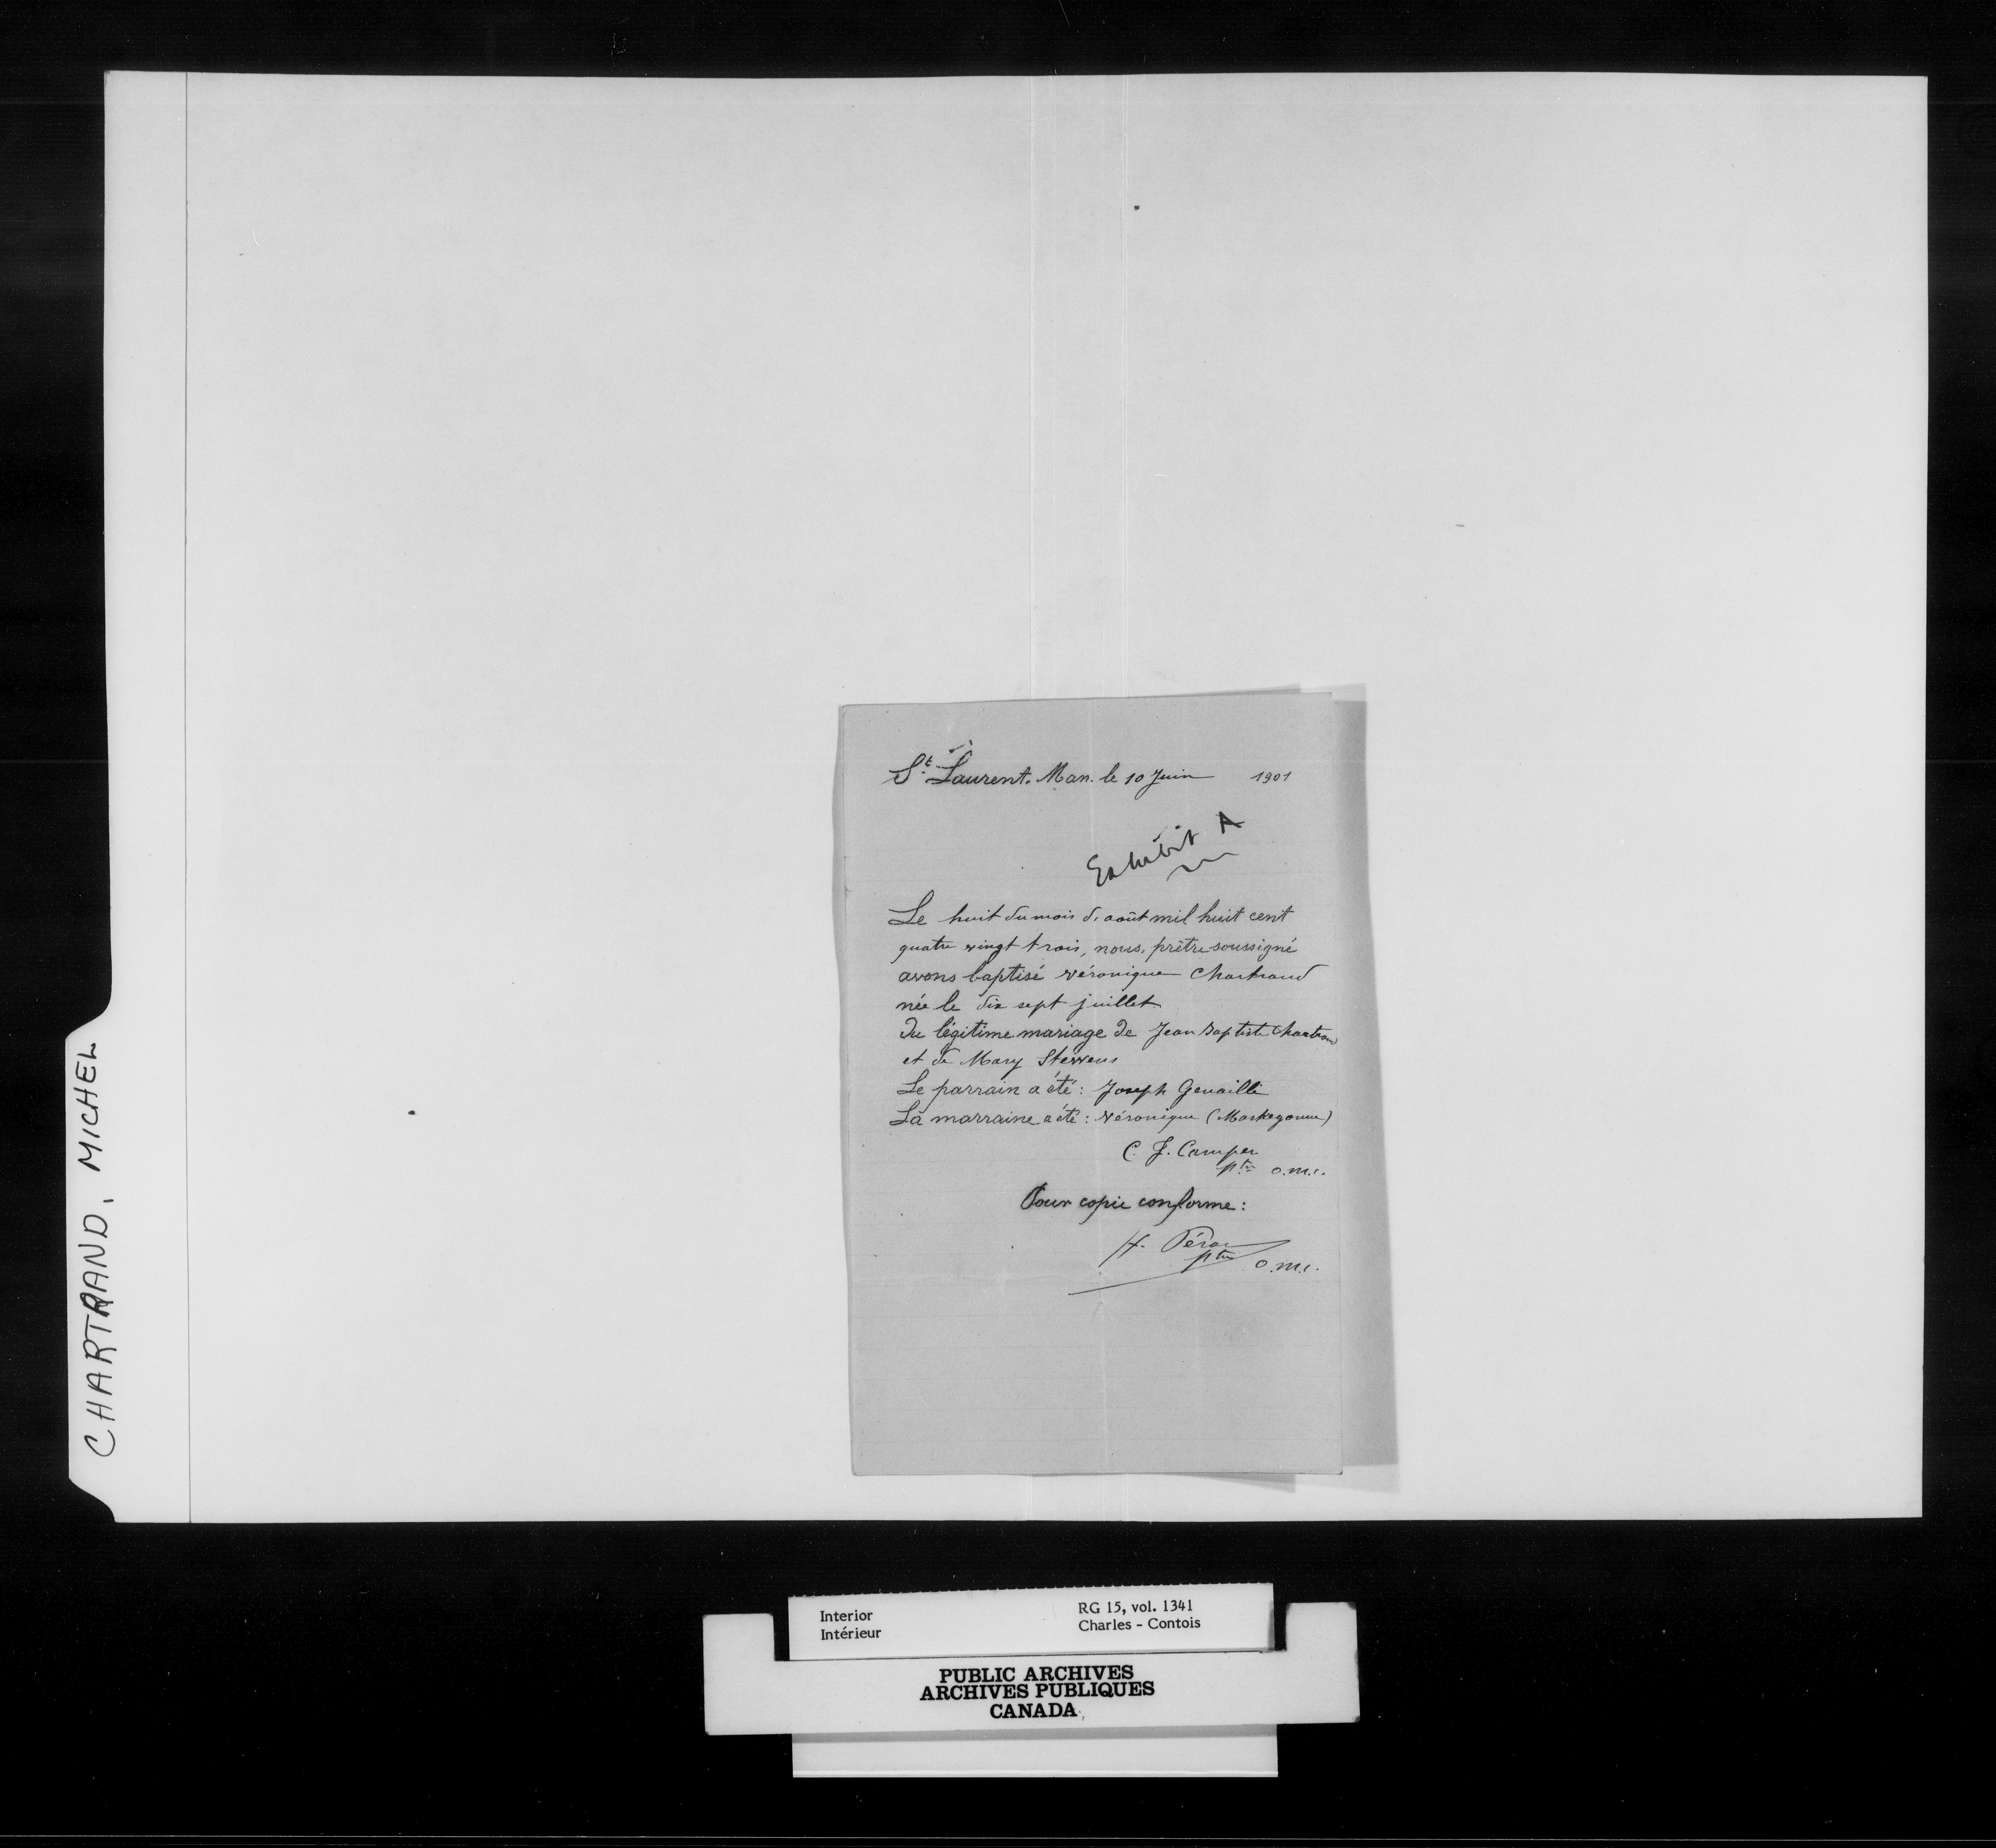 CHARTRAND, MICHEL
St. Laurent. Man. le 10 Juin 1901
Exhibit A
Le huit du mois d'août mil huit cent
quatre vingt trois, nous, prêtre soussigné
avons baptisé Véronique Chartrand
née le dix sept juillet
du légitime mariage de Jean Baptiste Chartrand
et de Mary Stevens
Le parrain a été: Joseph Genaille
La marraine a été: Véronique
C. J. Camper
ptre o.m.i.
Pour copie conforme:
H. Péran
ptre o.m.i.
Interior RG 15, vol. 1341
Intérieur Charles - Contois
PUBLIC ARCHIVES
ARCHIVES PUBLIQUES
CANADA